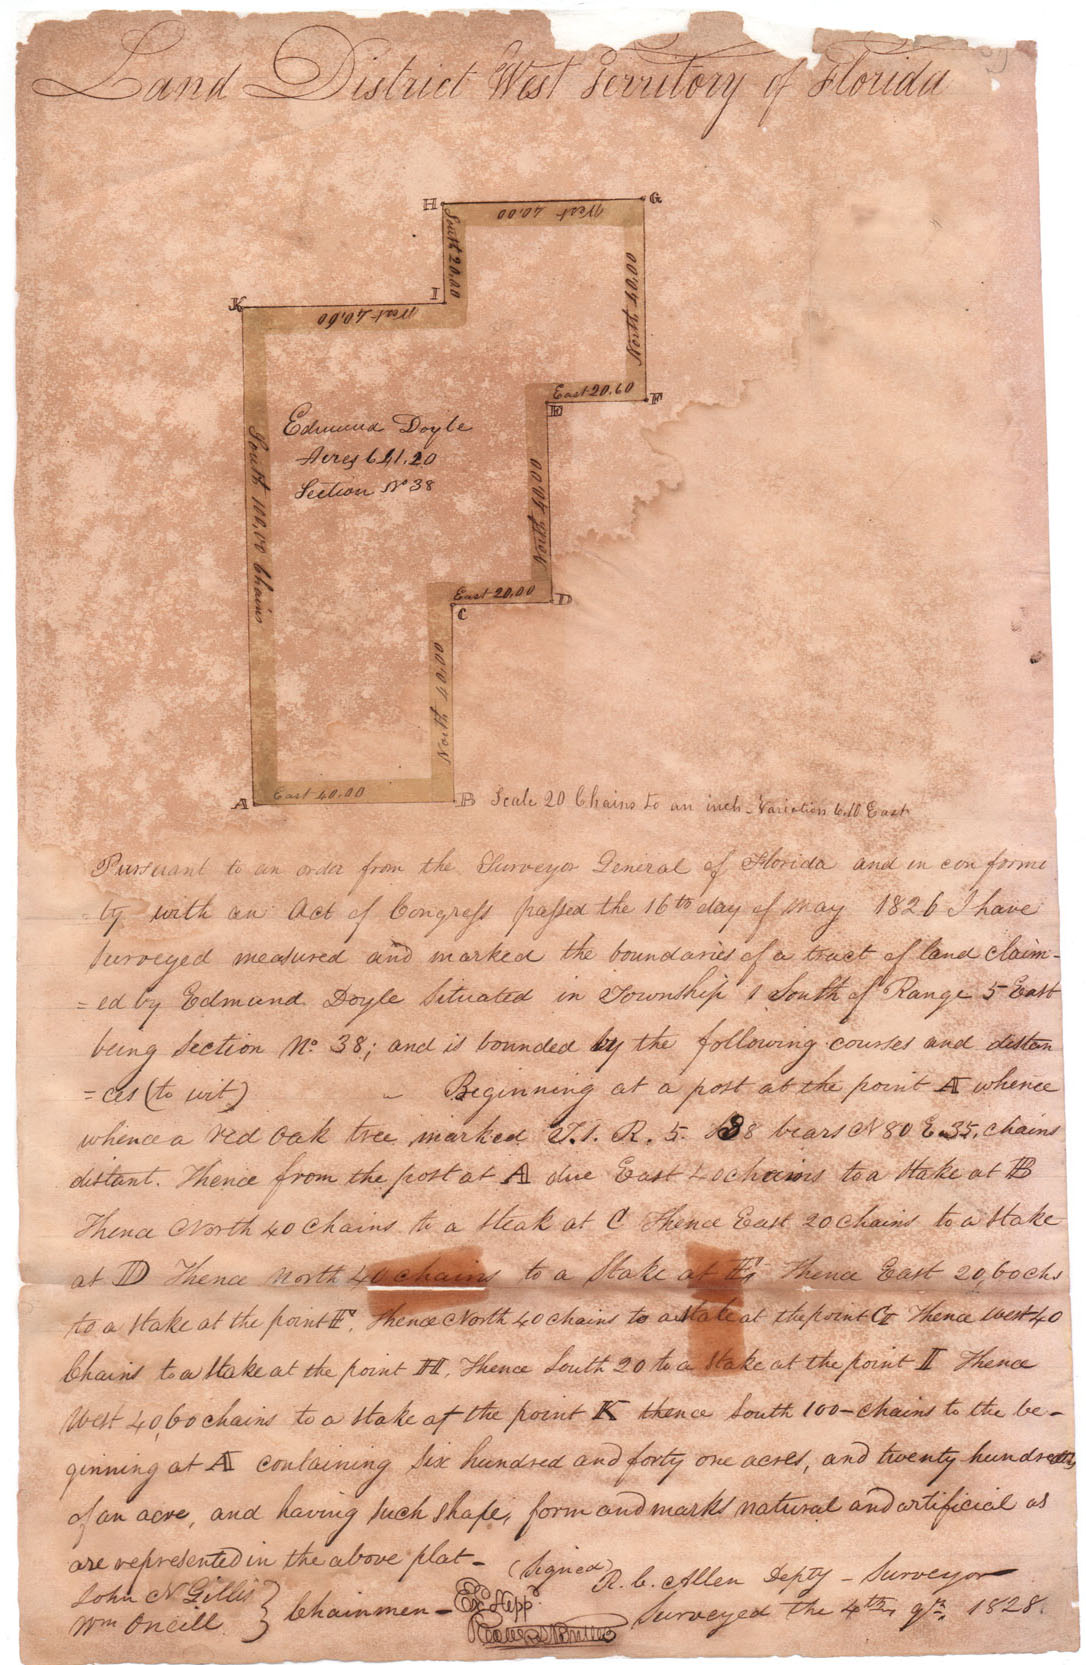 Land District West Territory of Florida
H
G
West 40.00
South 20.00
K
I
West 40.60
North 40.00
East 20.60
F
E
Edmund Doyle
Acres 641.20
Section No 38
South 100,00 Chains
North 40,00
East 20.00
D
C
North 40.00
East 40.00
A
B Scale 20 Chains to an inch - Variation 6.10 East
Pursuant to an order from the Surveyor General of Florida and in conformi
=ty with an Act of Congress passed the 16th day of May 1826 I have
surveyed measured and marked the boundaries of a tract of land claim-
=ed by Edmund Doyle Situated in Township 1 South of Range 5 East
being Section No. 38; and is bounded by the following courses and distan
=ces (to wit) Beginning at a post at the point A whence
whence a red oak tree marked T.1. R. 5. S38 bears N 80 E. 35, chains
distant. Thence from the post at A due East 40 chains to a stake at B
Thence North 40 chains to a steak at C Thence East 20 chains to a stake
at D Thence North 40 chains to a stake at E, Thence East 20,60 chs
to a stake at the point F. Thence North 40 chains to a stake at the point G Thence West 40
Chains to a stake at the point H. Thence South 20 to a stake at the point I Thence
West 40,60 chains to a stake at the point K thence South 100 - chains to the be-
ginning at A containing six hundred and forty one acres, and twenty hundredths
of an acre, and having such shape, form and marks natural and artificial as
are represented in the above plat -
(Signed) R. C. Allen Depty - Surveyor
John N Gillis
Wm Oneill } Chainmen -
Surveyed the 4th, qr. 1828.